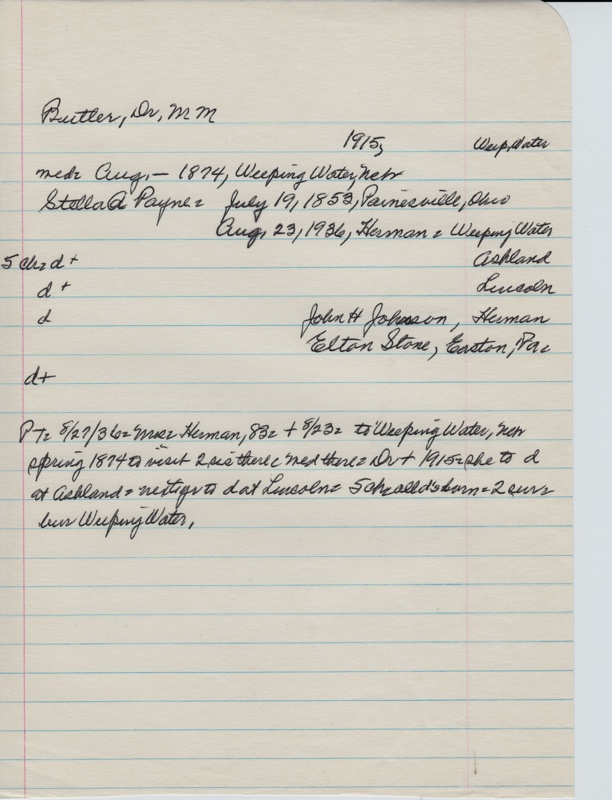 Butler, Dr, M M
1915, Weep, Water
med= Aug, — 1874, Weeping Water, Nebr
Stella A Payne = July 19, 1853, Painesville, Ohio
Aug, 23, 1936, Herman = Weeping Water
5 ch= d + Ashland
d + Lincoln
d John H Johnson, Herman
Elton Stone, Easton, Pa
d+
PT= 8/27/36= Mrs= Herman, 83= + 8/23= to Weeping Water, Nebr
spring 1874 to visit 2 sis there = med there = Dr + 1915= she to d
at Ashland = to d at Lincoln = 5 ch= all ds born = 2 surv=
bur Weeping Water,